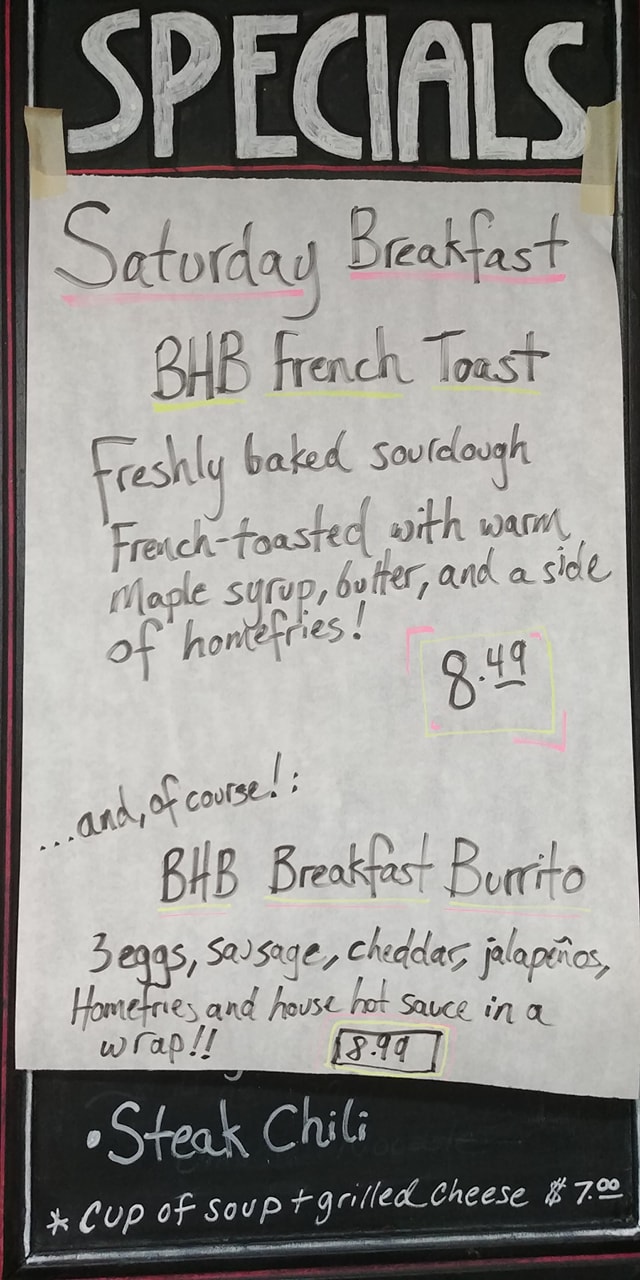 SPECIALS
Saturday Breakfast
BHB French Toast
Freshly baked sourdough
French-toasted with warm
Maple syrup, butter, and a side
of homefries!
8.49
...and, of course!:
BHB Breakfast Burrito
3 eggs, sausage, cheddar, jalapeños,
Homefries and house hot sauce in a
wrap!!
8.99
• Steak Chili
* Cup of soup + grilled cheese $7.00